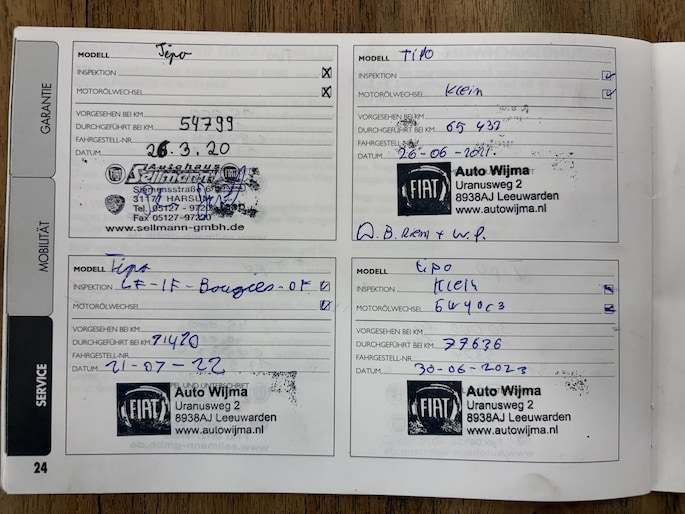 GARANTIE
MOBILITÄT
SERVICE
24
MODELL Tipo
INSPEKTION X
MOTORÖLWECHSEL X
VORGESEHEN BEI KM
DURCHGEFÜHRT BEI KM 54799
FAHRGESTELL-NR.
DATUM 26.3.20
Autohaus
Sellmann
FIAT
Siemensstraße 6
31177 HARSUM
Tel. 05127 - 9720
Fax 05127-97220
www.sellmann-gmbh.de
MODELL TIPO
INSPEKTION
MOTORÖLWECHSEL Klein
VORGESEHEN BEI KM
DURCHGEFÜHRT BEI KM 65 432
FAHRGESTELL-NR.
DATUM 26-06-2021
FIAT
Auto Wijma
Uranusweg 2
8938AJ Leeuwarden
www.autowijma.nl
D.B. Riem + W.P.
MODELL Tipo
INSPEKTION LF-IF-Bougies-OF
MOTORÖLWECHSEL
VORGESEHEN BEI KM
DURCHGEFÜHRT BEI KM 71420
FAHRGESTELL-NR.
DATUM 21-07-22
UND UNTERSCHRIFT
FIAT
Auto Wijma
Uranusweg 2
8938AJ Leeuwarden
www.autowijma.nl
MODELL tipo
INSPEKTION Klein
MOTORÖLWECHSEL 5W40C3
VORGESEHEN BEI KM
DURCHGEFÜHRT BEI KM 79636
FAHRGESTELL-NR.
DATUM 30-06-2023
FIAT
Auto Wijma
Uranusweg 2
8938AJ Leeuwarden
www.autowijma.nl